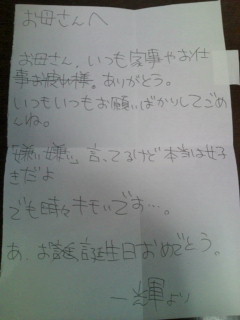 お母さんへ
お母さん、いつも家事やお仕
事お疲れ様。ありがとう。
いもいつもお願いばかりしてごめ
んね。
「嫌い嫌い」言ってるけど本当は好
きだよ
でも時々キモいです…。
あ、お誕生日おめでとう。
一輝より